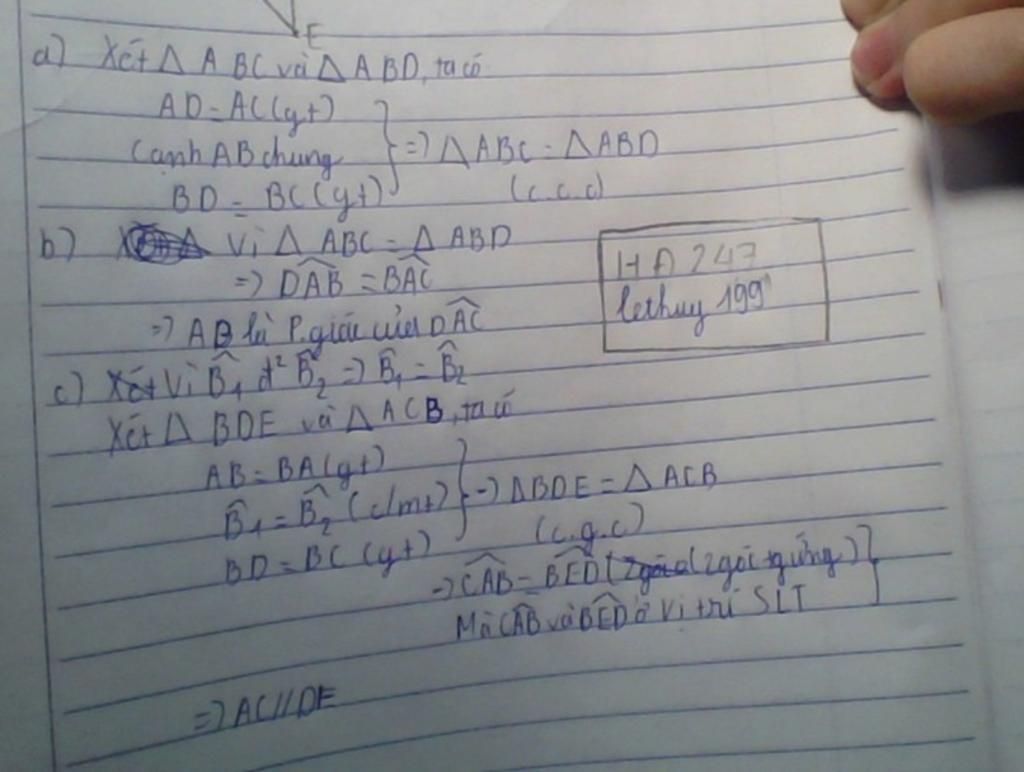 E
a) Xét Δ ABC và Δ ABD, ta có
AD = AC (gt)
Cạnh AB chung
BD = BC (gt)
=> Δ ABC = Δ ABD
(c.c.c)
b) Vì Δ ABC = Δ ABD
=> DAB̂ = BAĈ
=> AB là P.giác của DAĈ
HA247
lethuy 199
c) Xét Vì B̂₁ đ² B̂₂ => B̂₁ = B̂₂
Xét Δ BDE và Δ ACB, ta có
AB = BA (gt)
B̂₁ = B̂₂ (c/mt)
BD = BC (gt)
=> ΔBDE = Δ ACB
(c.g.c)
=> CAB̂ = BED̂ (2 góc (2 góc tg ứng)
Mà CAB̂ và BED̂ ở vị trí SLT
=> AC // DE